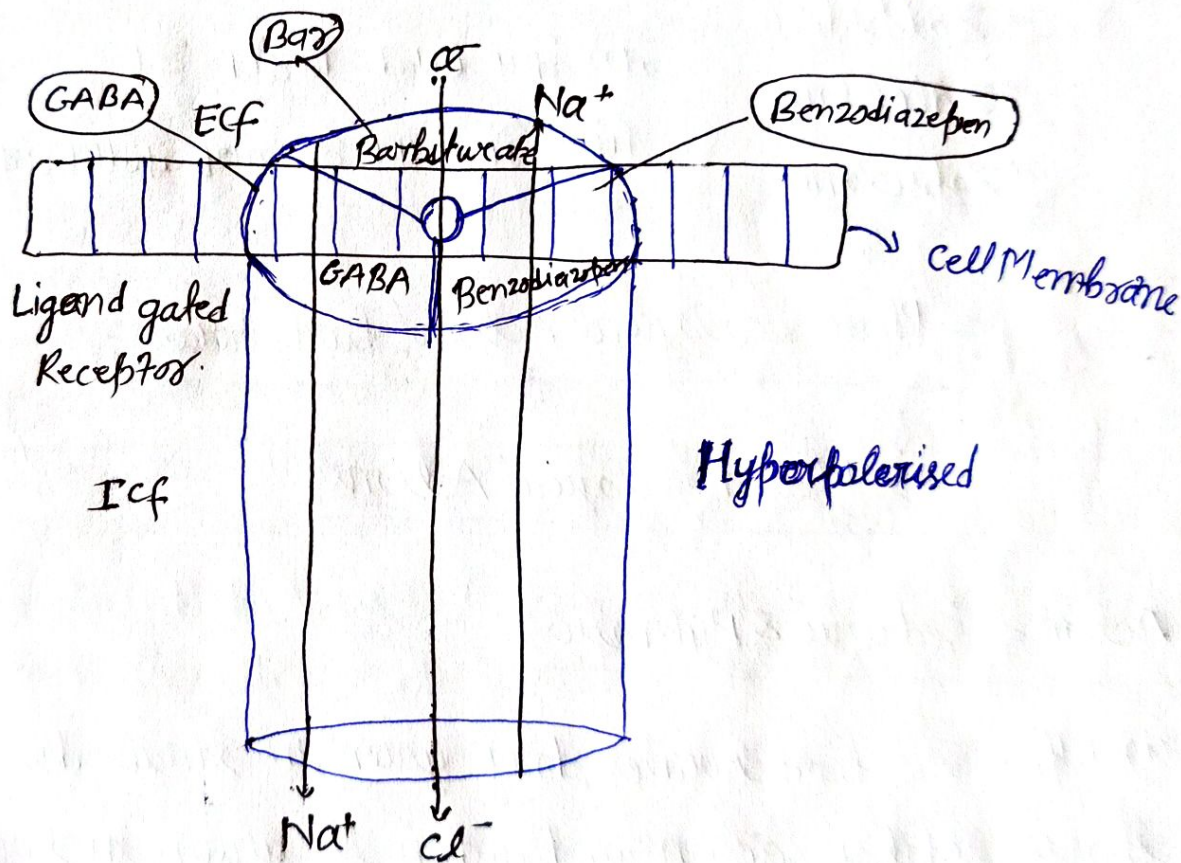 Bar
Cl⁻
GABA
Ecf
Na⁺
Benzodiazepen
Barbiturate
GABA
Benzodiazepen
Cell Membrane
Ligand gated
Receptor.
Icf
Hyperpolerised
Na⁺
Cl⁻